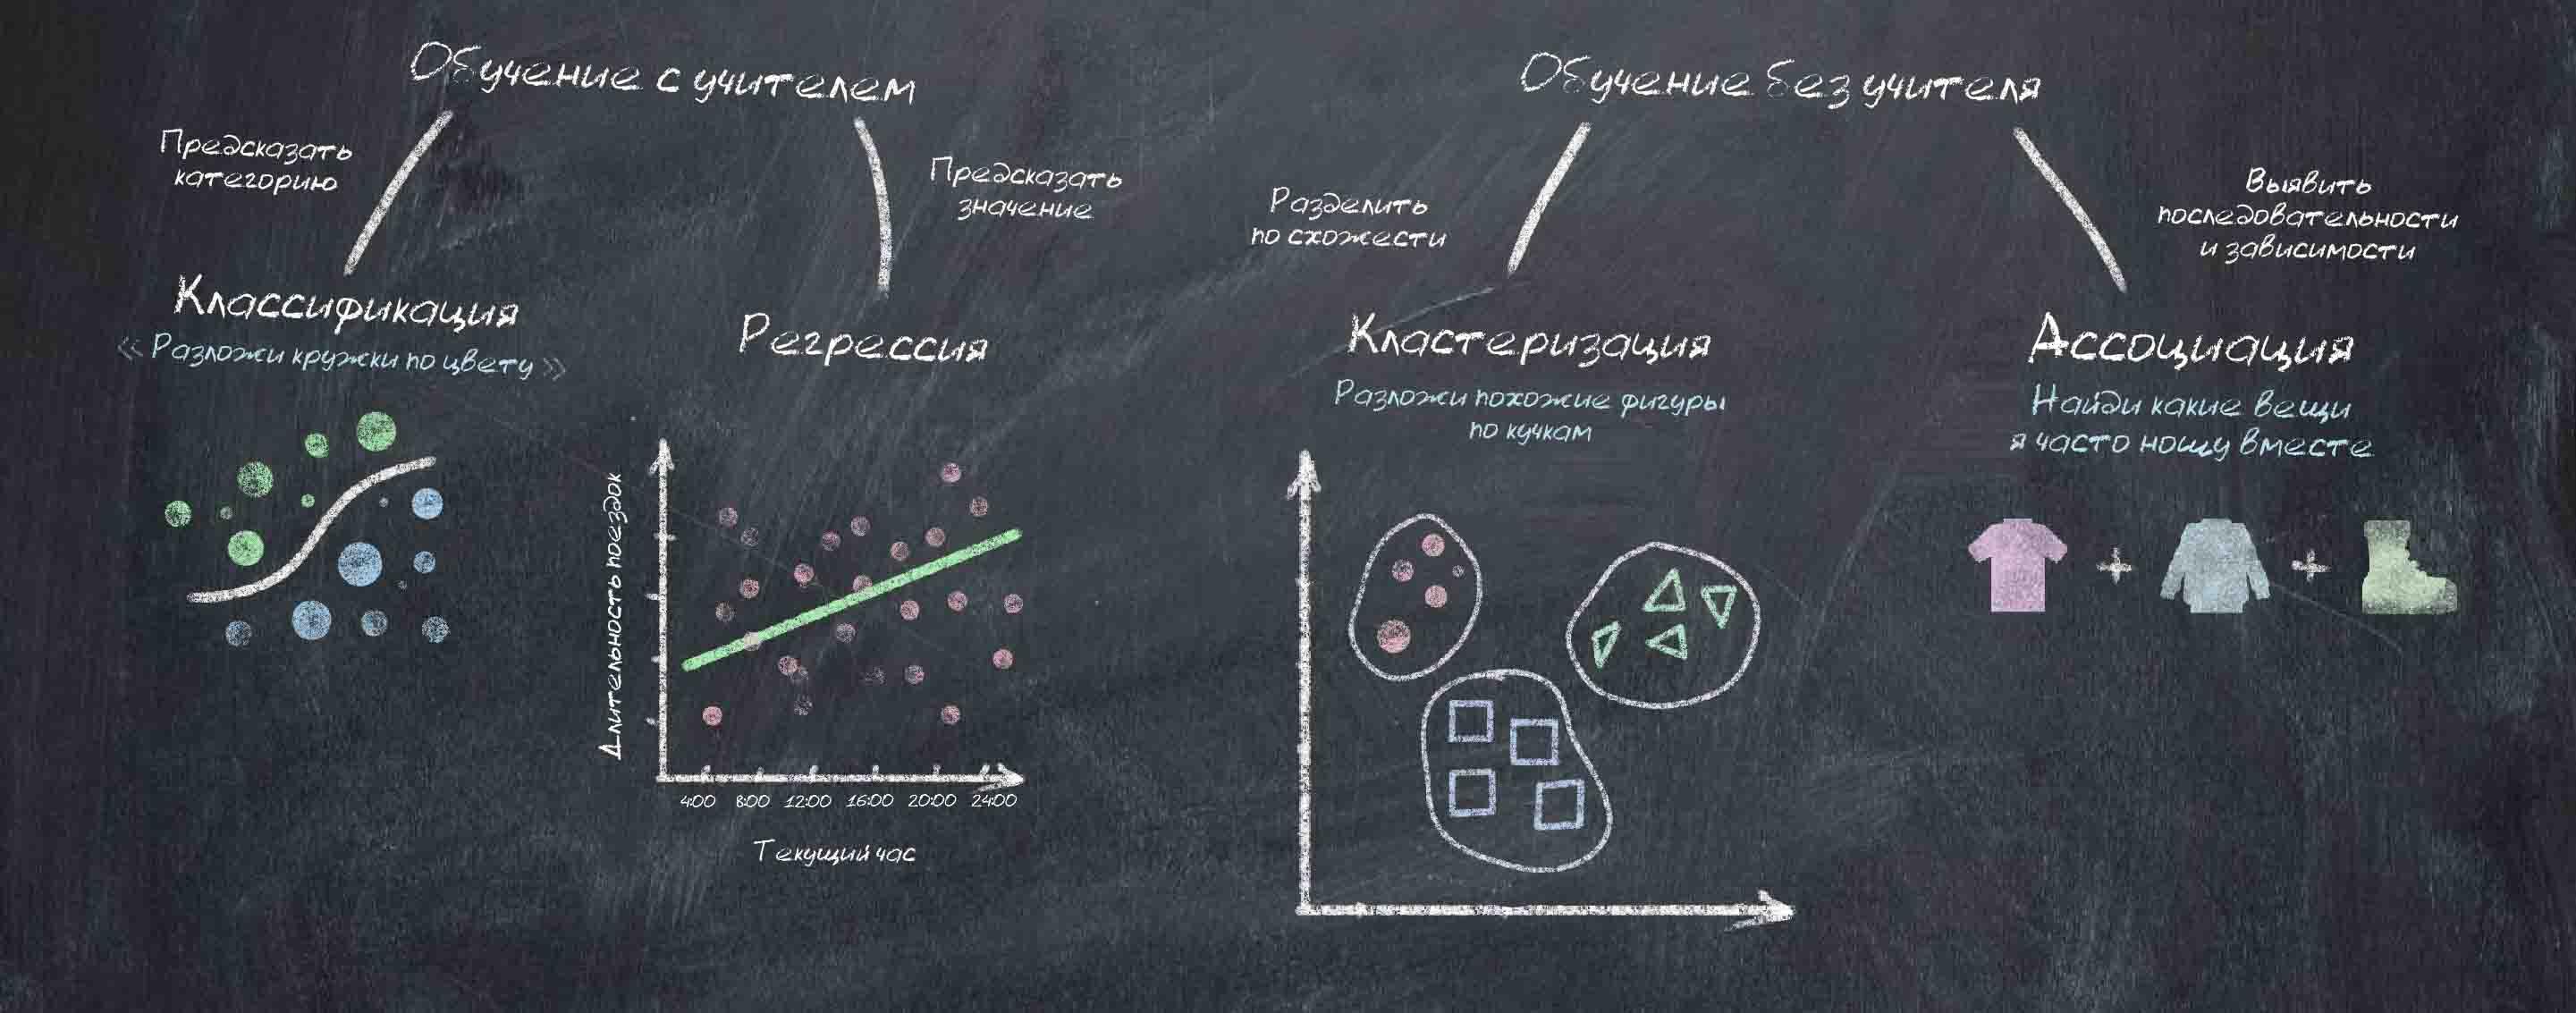 Обучение с учителем
Предсказать
категорию
Предсказать
значение
Классификация
« Разложи кружки по цвету »
Регрессия
Длительность поездок
4:00 8:00 12:00 16:00 20:00 24:00
Текущий час
Обучение без учителя
Разделить
по схожести
Выявить
последовательности
и зависимости
Кластеризация
Разложи похожие фигуры
по кучкам
Ассоциация
Найди какие вещи
я часто ношу вместе
+ +